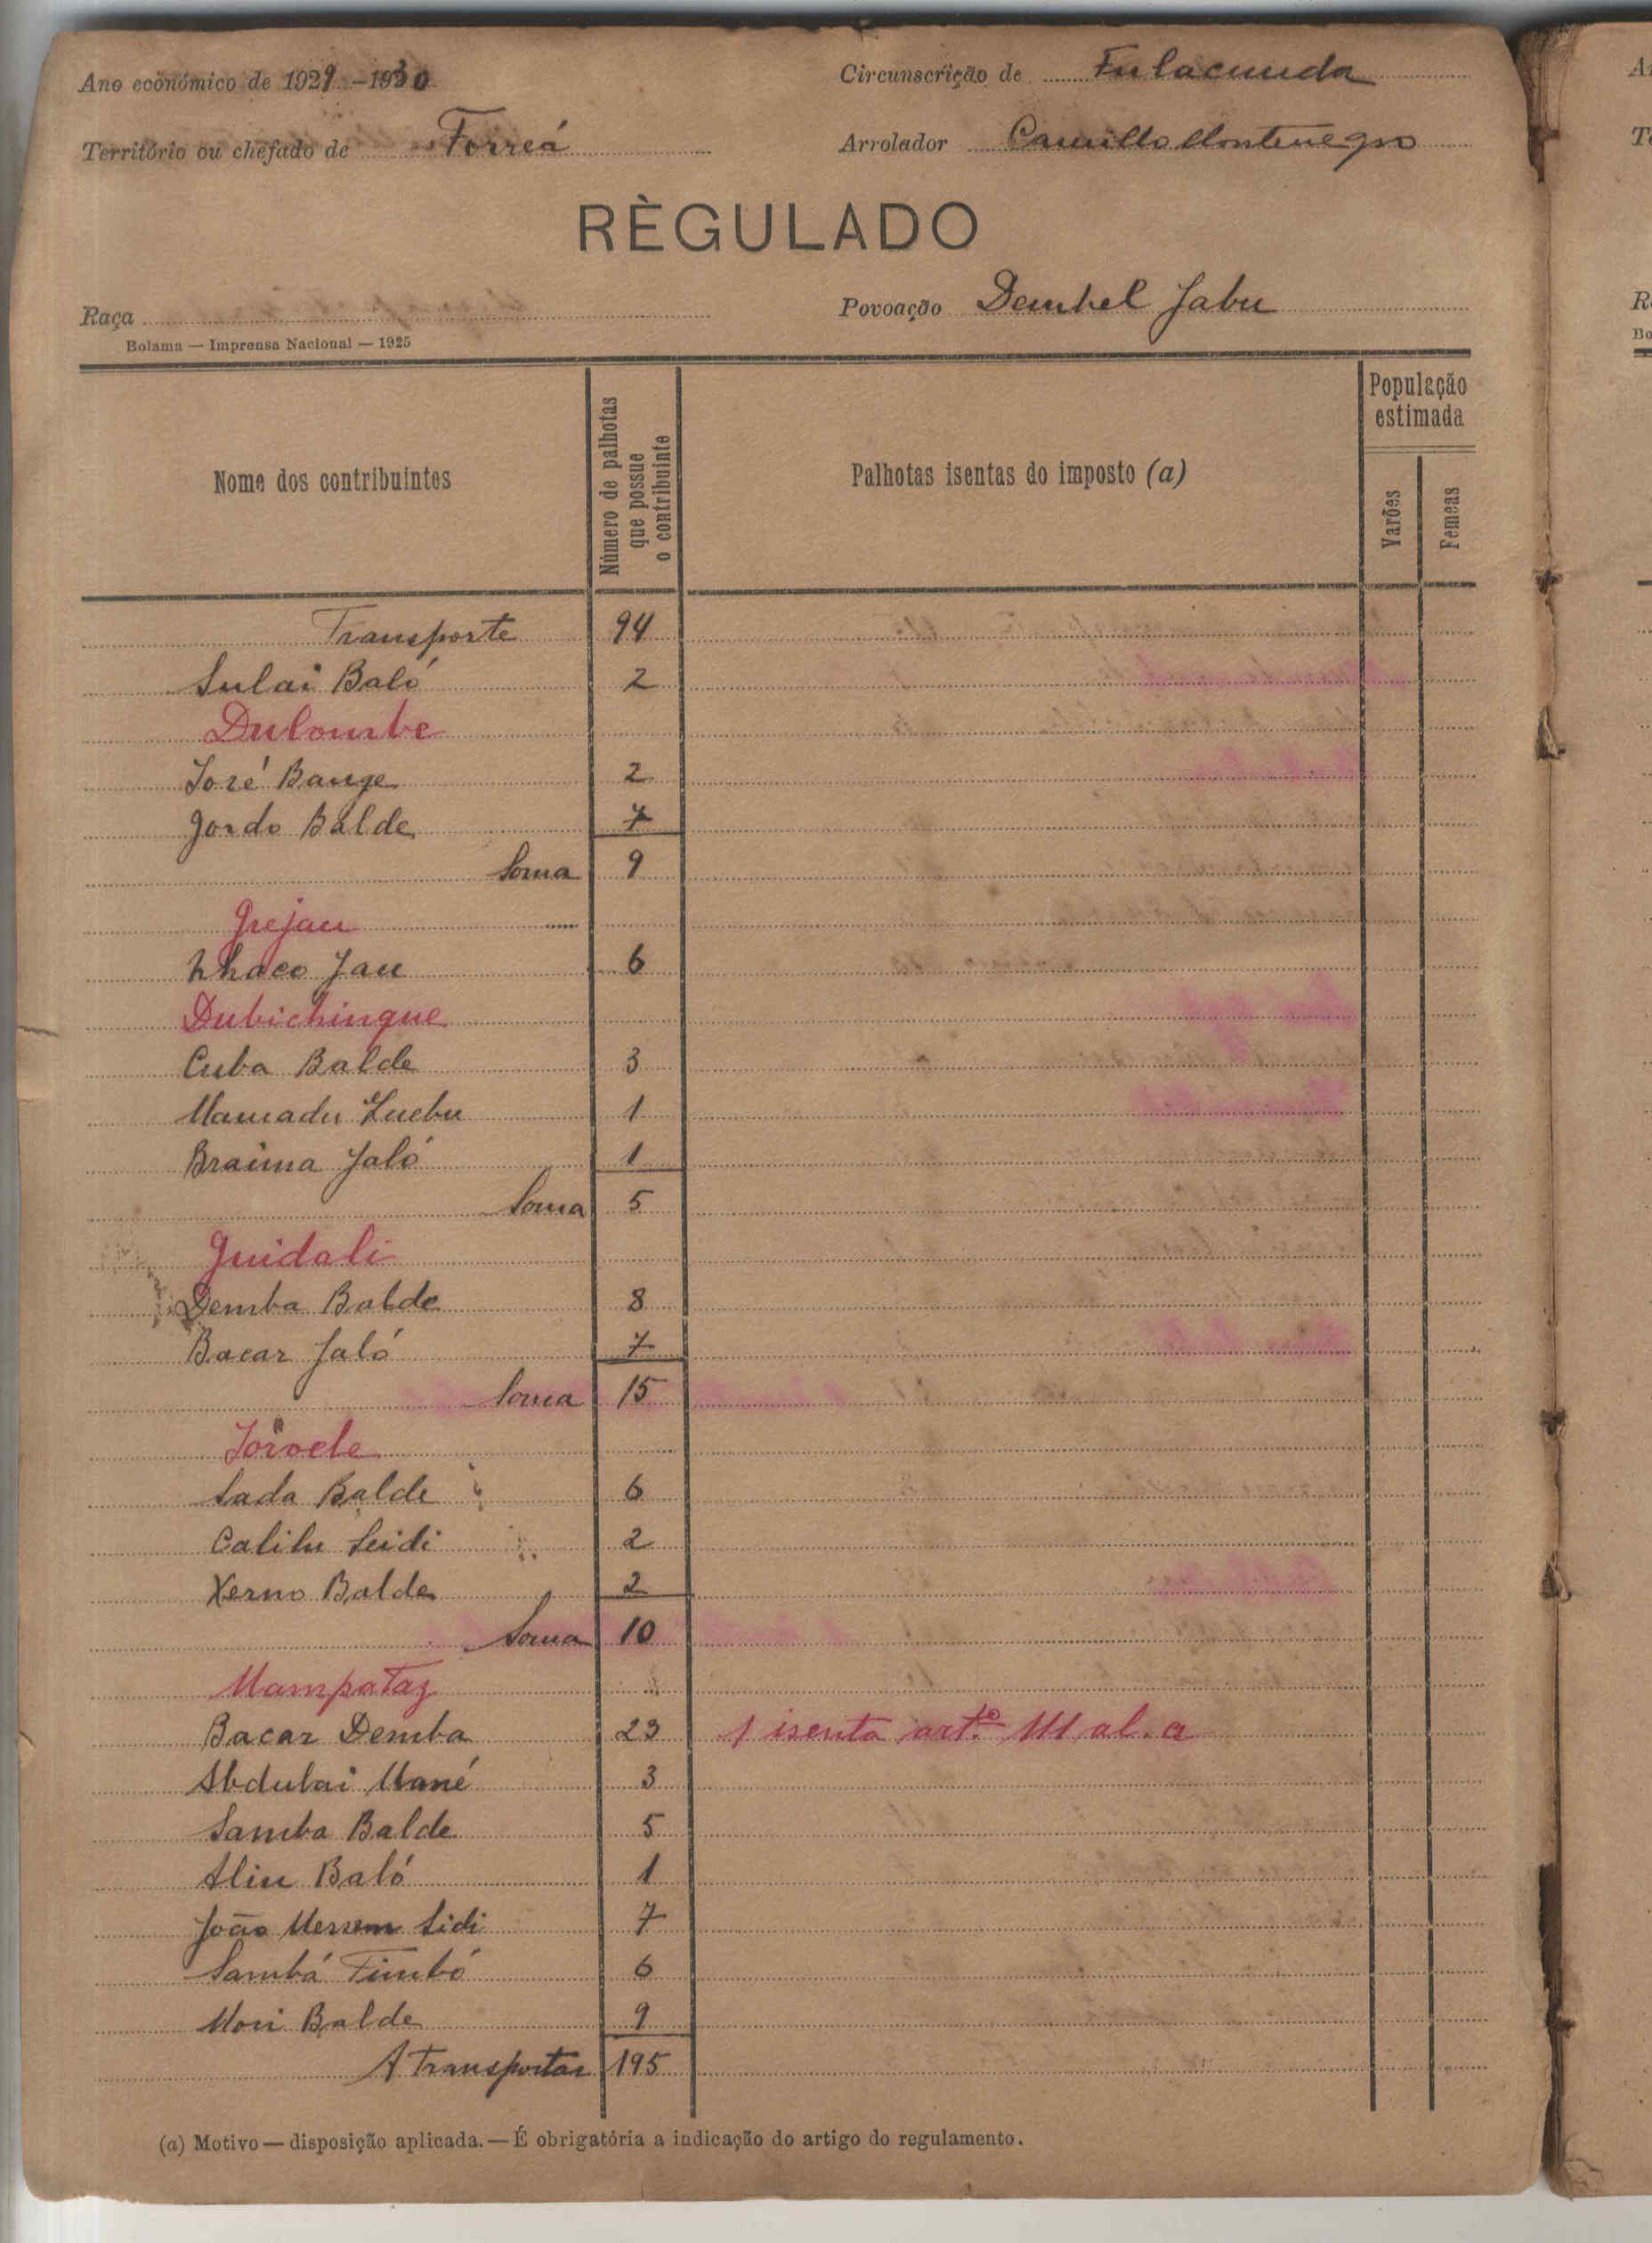 Ano económico de 1929-1930
Circunscrição de Fulacunda
Território ou chefado de Forreá
Arrolador Camillo Montenegro
RÈGULADO
Raça
Povoação Dembel Jabu
Bolama — Imprensa Nacional — 1925
Nome dos contribuintes
Número de palhotas que possue o contribuinte
Palhotas isentas do imposto (a)
População estimada
Varões
Femeas
Transporte 94
Sulai Baló 2
Dulombe
José Bange 2
Gordo Balde 7
Soma 9
Grejau
Jau 6
Dubichinque
Cuba Balde 3
Mamadu 1
Braima Jaló 1
Soma 5
Guidali
Demba Balde 8
Bacar Jaló 7
Soma 15
Joroele
Sada Balde 6
Calilu Seidi 2
Xerno Balde 2
Soma 10
Mampataz
Bacar Demba 23 1 isenta art.º 111 al. a
Abdulai Mané 3
Samba Balde 5
Aliu Baló 1
João Sidi 7
Sambá Timbó 6
Mori Balde 9
A Transportar 195
(a) Motivo — disposição aplicada. — É obrigatória a indicação do artigo do regulamento.